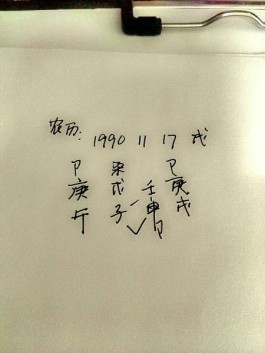 农历: 1990 11 17 戌
卩庚午
杀戊子
壬申卩
卩庚戌